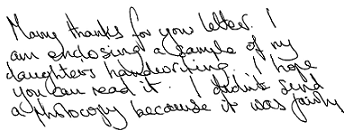 Many thanks for you letter. I
am enclosing a sample of my
daughters handwriting. I hope
you can read it. I didn't send
a photocopy because it was fairly